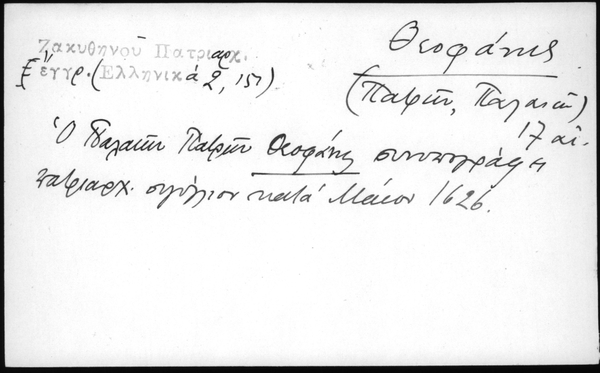 Ζακυθηνοῦ Πατριαρχ.
ἔγγρ. (Ἑλληνικά 2, 151)
Θεοφάνης
(Πατρῶν, Παλαιῶν)
17 αἰ.
Ὁ Παλαιῶν Πατρῶν Θεοφάνης συνυπογράφει
πατριαρχ. σιγίλλιον κατά Μάιον 1626.